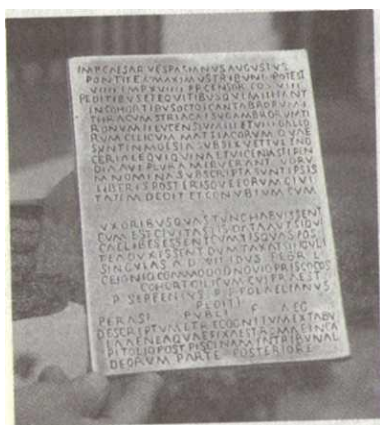 IMP CAESAR VESPASIANVS AVGVSTVS
PONTIFEX MAXIMVS TRIBVNIC POTEST
VIIII IMP XVIIII P P CENSOR COS VIII
PEDITIBVS ET EQVITIBVS QVI MILITANT
IN COHORTIBVS OCTO I CANTABRORVM I
THRACVM SYRIACA I SVGAMBRORVM TI
RONVM II LVCENSIVM III ET VIII GALLO
RVM CILICVM MATTIACORVM QVAE
SVNT IN MOESIA SVB SEX VETTVLENO
CERIALE QVI QVINA ET VICENA STIPEN
DIA AVT PLVRA MERVERANT QVORV
NOMINA SVBSCRIPTA SVNT IPSIS
LIBERIS POSTERISQVE EORVM CIVI
TATEM DEDIT ET CONVBIVM CVM
VXORIBVS QVAS TVNC HABVISSENT
CVM EST CIVITAS IIS DATA AVT SIQVI
CAELIBES ESSENT CVM IIS QVAS POS
TEA DVXISSENT DVMTAXAT SINGVLI
SINGVLAS A D VII IDVS FEBR L
CEIONIO COMMODO D NOVIO PRISCO COS
COHORT CILICVM CVI PRAEST
P SEPPIENIVS AELIANVS
PEDITI
PERASI PVBLI F AEG
DESCRIPTVM ET RECOGNITVM EX TABV
LA AENEA QVAE FIXA EST ROMAE IN CA
PITOLIO POST PISCINAM IN TRIBVNAL
DEORVM PARTE POSTERIORE